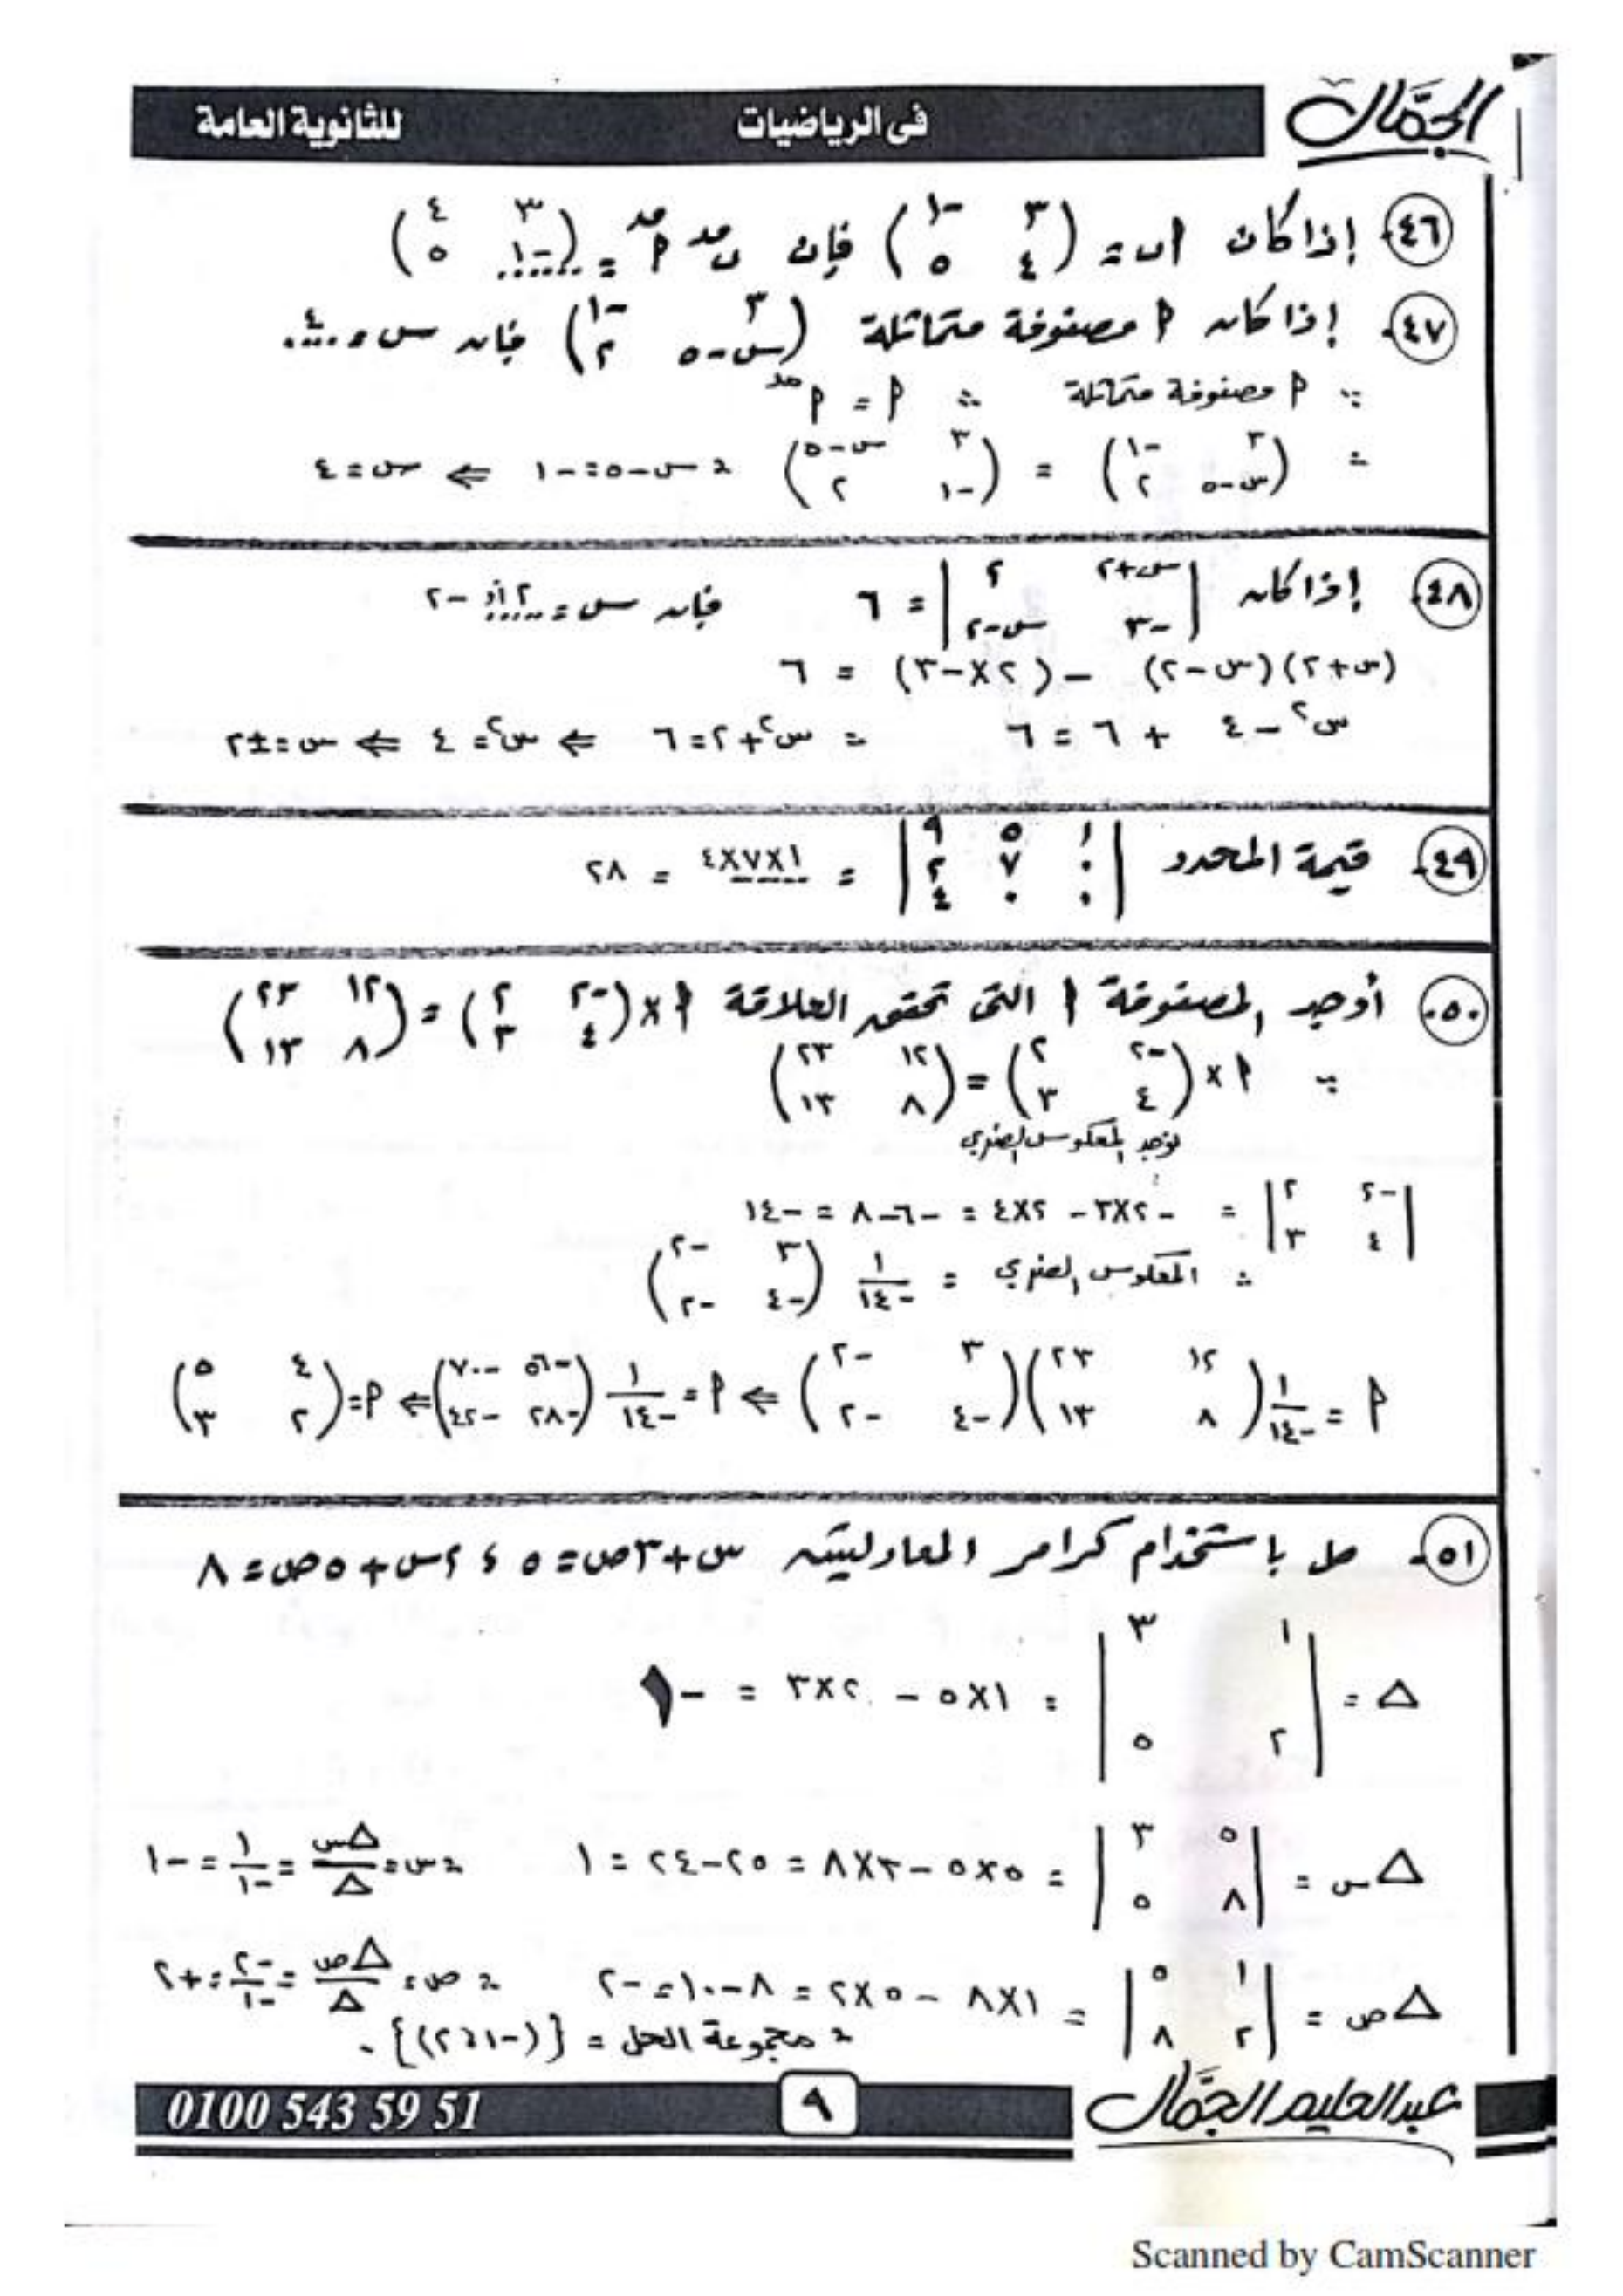 الجمال
فى الرياضيات
للثانوية العامة
٤٦- إذا كان أ ب = (٣ -١
٤ ٥) فإن ب مد أ مد = (٣ ٤
-١ ٥)
٤٧- إذا كان أ مصفوفة متماثلة (٣ -١
س-٥ ٢) فإن س = ٤
∵ أ مصفوفة متماثلة ∴ أ = أ مد
∴ (٣ -١
س-٥ ٢) = (٣ س-٥
-١ ٢) ∴ س-٥=-١ ⇐ س=٤
٤٨- إذا كان |س+٢ ٢
-٣ س-٢| = ٦ فإن س = ٢ أو -٢
(س+٢)(س-٢) - (٢×-٣) = ٦
س٢ - ٤ + ٦ = ٦ ∴ س٢+٢=٦ ⇐ س٢=٤ ⇐ س=±٢
٤٩- قيمة المحدد |١ ٥ ٩
٠ ٧ ٢
٠ ٠ ٤| = ١×٧×٤ = ٢٨
٥٠- أوجد المصفوفة أ التى تحقق العلاقة أ × (-٢ ٢
٤ ٣) = (١٢ ٢٣
٨ ١٣)
∵ أ × (-٢ ٢
٤ ٣) = (١٢ ٢٣
٨ ١٣)
نوجد المعكوس الضربي
|-٢ ٢
٤ ٣| = -٢×٣ - ٢×٤ = -٦-٨ = -١٤
∴ المعكوس الضربي = ١/-١٤ (٣ -٢
-٤ -٢)
أ = ١/-١٤ (١٢ ٢٣
٨ ١٣)(٣ -٢
-٤ -٢) ⇐ أ = ١/-١٤ (-٥٦ -٧٠
-٢٨ -٤٢) ⇐ أ = (٤ ٥
٢ ٣)
٥١- حل باستخدام كرامر المعادلتين س+٣ص=٥ ، ٢س+٥ص=٨
Δ = |١ ٣
٢ ٥| = ١×٥ - ٢×٣ = -١
Δس = |٥ ٣
٨ ٥| = ٥×٥-٣×٨ = ٢٥-٢٤ = ١ ∴ س = Δس/Δ = ١/-١ = -١
Δص = |١ ٥
٢ ٨| = ١×٨ - ٥×٢ = ٨-١٠=-٢ ∴ ص = Δص/Δ = -٢/-١ = +٢
∴ مجموعة الحل = {(-١،٢)}.
عبدالحليم الجمال
٩
0100 543 59 51
Scanned by CamScanner